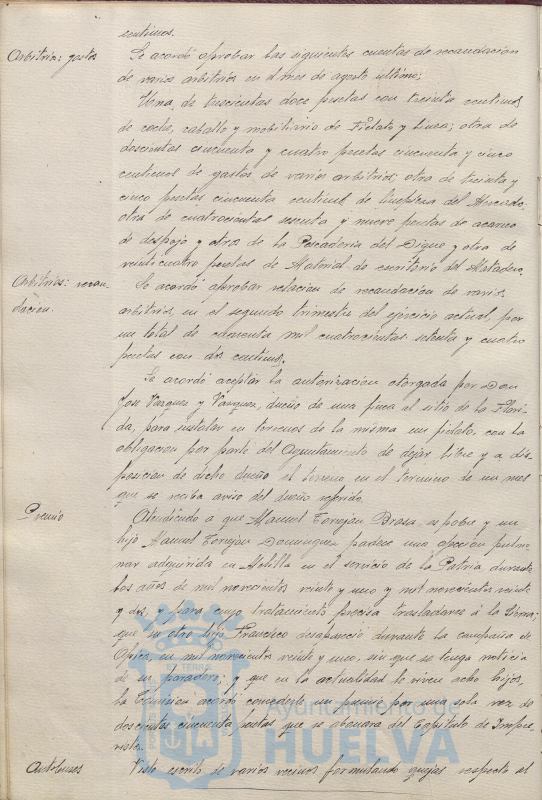 centimos.
Arbitrios: gastos
Se acordó aprobar las siguientes cuentas de recaudacion
de varios arbitrios en el mes de agosto ultimo;
Una, de trescientas doce pesetas con treinta centimos
de coche, caballo y mobiliario de Fielato y Linea; otra de
doscientas cincuenta y cuatro pesetas cincuenta y cinco
centimos de gastos de varios arbitrios; otra de treinta y
cinco pesetas cincuenta centimos de limpieza del Mercado,
otra de cuatrocientas sesenta y nueve pesetas de acarreo
de despojo y otra de la Pescaderia del Dique y otra de
veinticuatro pesetas de Material de escritorio del Matadero.
Arbitrios: recau-
dacion.
Se acordó aprobar relacion de recaudacion de varios
arbitrios, en el segundo trimestre del ejercicio actual, por
un total de cuarenta mil cuatrocientas setenta y cuatro
pesetas con dos centimos.
Se acordó aceptar la autorizacion otorgada por Don
José Vazquez y Vazquez, dueño de una finca al sitio de la Flori-
da, para instalar en terrenos de la misma un fielato, con la
obligacion por parte del Ayuntamiento de dejar libre y a dis-
posicion de dicho dueño el terreno en el termino de un mes
que se reciba aviso del dueño referido.
Premio
Atendiendo a que Manuel Torrejon Drosa, es pobre y un
hijo Manuel Torrejon Dominguez padece una afeccion pulmo-
nar adquirida en Melilla en el servicio de la Patria durante
los años de mil novecientos veinte y uno y mil novecientos veinte
y dos, y para cuyo tratamiento precisa trasladarse á la Sierra;
que su otro hijo Francisco desapareció durante la campaña de
Africa, en mil novecientos veinte y uno, sin que se tenga noticia
de su paradero; y que en la actualidad le viven ocho hijos,
la Comision acordó concederle un premio por una sola vez de
doscientas cincuenta pesetas que se abonara del Capitulo de Impre-
vistos.
Autobuses
Visto escrito de varios vecinos formulando quejas respecto al
Ayuntamiento de
HUELVA